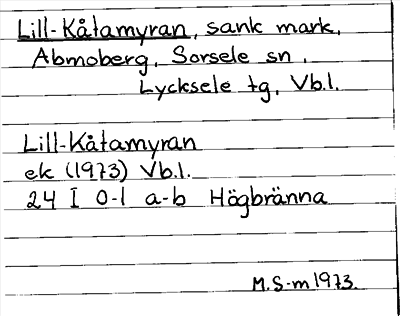 Lill-Kåtamyran, sank mark,
Abmoberg, Sorsele sn,
Lycksele tg, Vb.l.
Lill-Kåtamyran
ek (1973) Vb.l.
24 I 0-1 a-b Högbränna
M.S-m 1973.